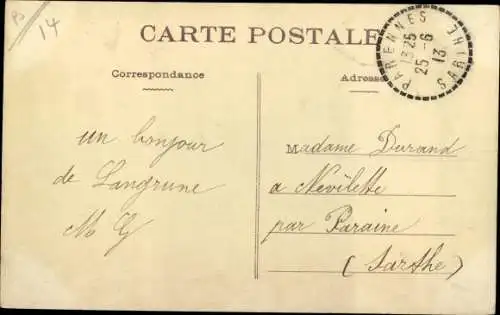 P5
14
CARTE POSTALE
PARENNES
13 25
25 - 6
13
SARTHE
Correspondance
Adresse
un bonjour
de Langrune
M G
Madame Durand
a Nevilette
par Paraine
(Sarthe)